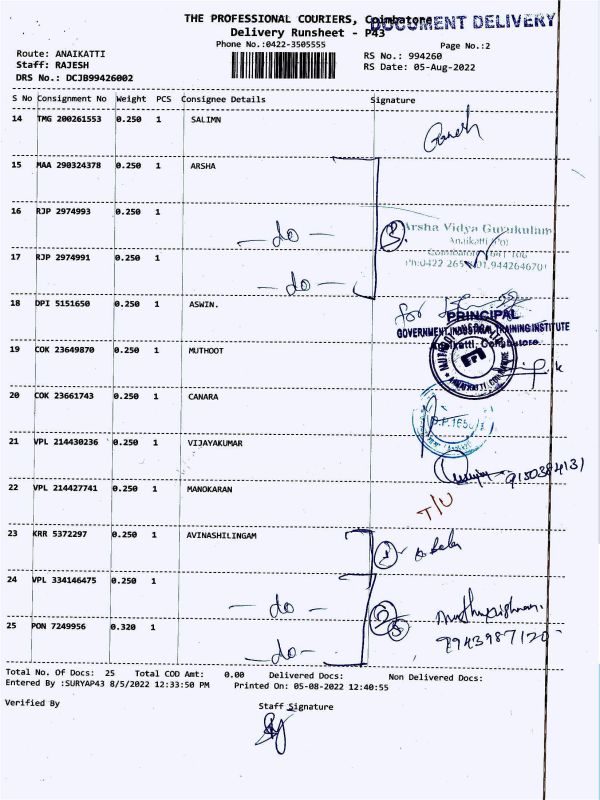 THE PROFESSIONAL COURIERS, Coimbatore
DOCUMENT DELIVERY
Delivery Runsheet - P43
Phone No.:0422-3505555
Page No.:2
Route: ANAIKATTI
RS No.: 994260
Staff: RAJESH
RS Date: 05-Aug-2022
DRS No.: DCJB99426002
S No Consignment No Weight PCS Consignee Details Signature
14 TMG 200261553 0.250 1 SALIMN
Ganesh
15 MAA 290324378 0.250 1 ARSHA
16 RJP 2974993 0.250 1
- do -
3
Arsha Vidya Gurukulam
Anaikatti (PO)
17 RJP 2974991 0.250 1
- do -
18 DPI 5151650 0.250 1 ASWIN.
for
PRINCIPAL
GOVERNMENT INDUSTRIAL TRAINING INSTITUTE
Anaikatti, Coimbatore.
19 COK 23649870 0.250 1 MUTHOOT
20 COK 23661743 0.250 1 CANARA
21 VPL 214430236 0.250 1 VIJAYAKUMAR
22 VPL 214427741 0.250 1 MANOKARAN
T/U
23 KRR 5372297 0.250 1 AVINASHILINGAM
1
24 VPL 334146475 0.250 1
- do -
2
Muthukrishnan.
25 PON 7249956 0.320 1
3
- do -
Total No. Of Docs: 25 Total COD Amt: 0.00 Delivered Docs: Non Delivered Docs:
Entered By :SURYAP43 8/5/2022 12:33:50 PM Printed On: 05-08-2022 12:40:55
Verified By
Staff Signature